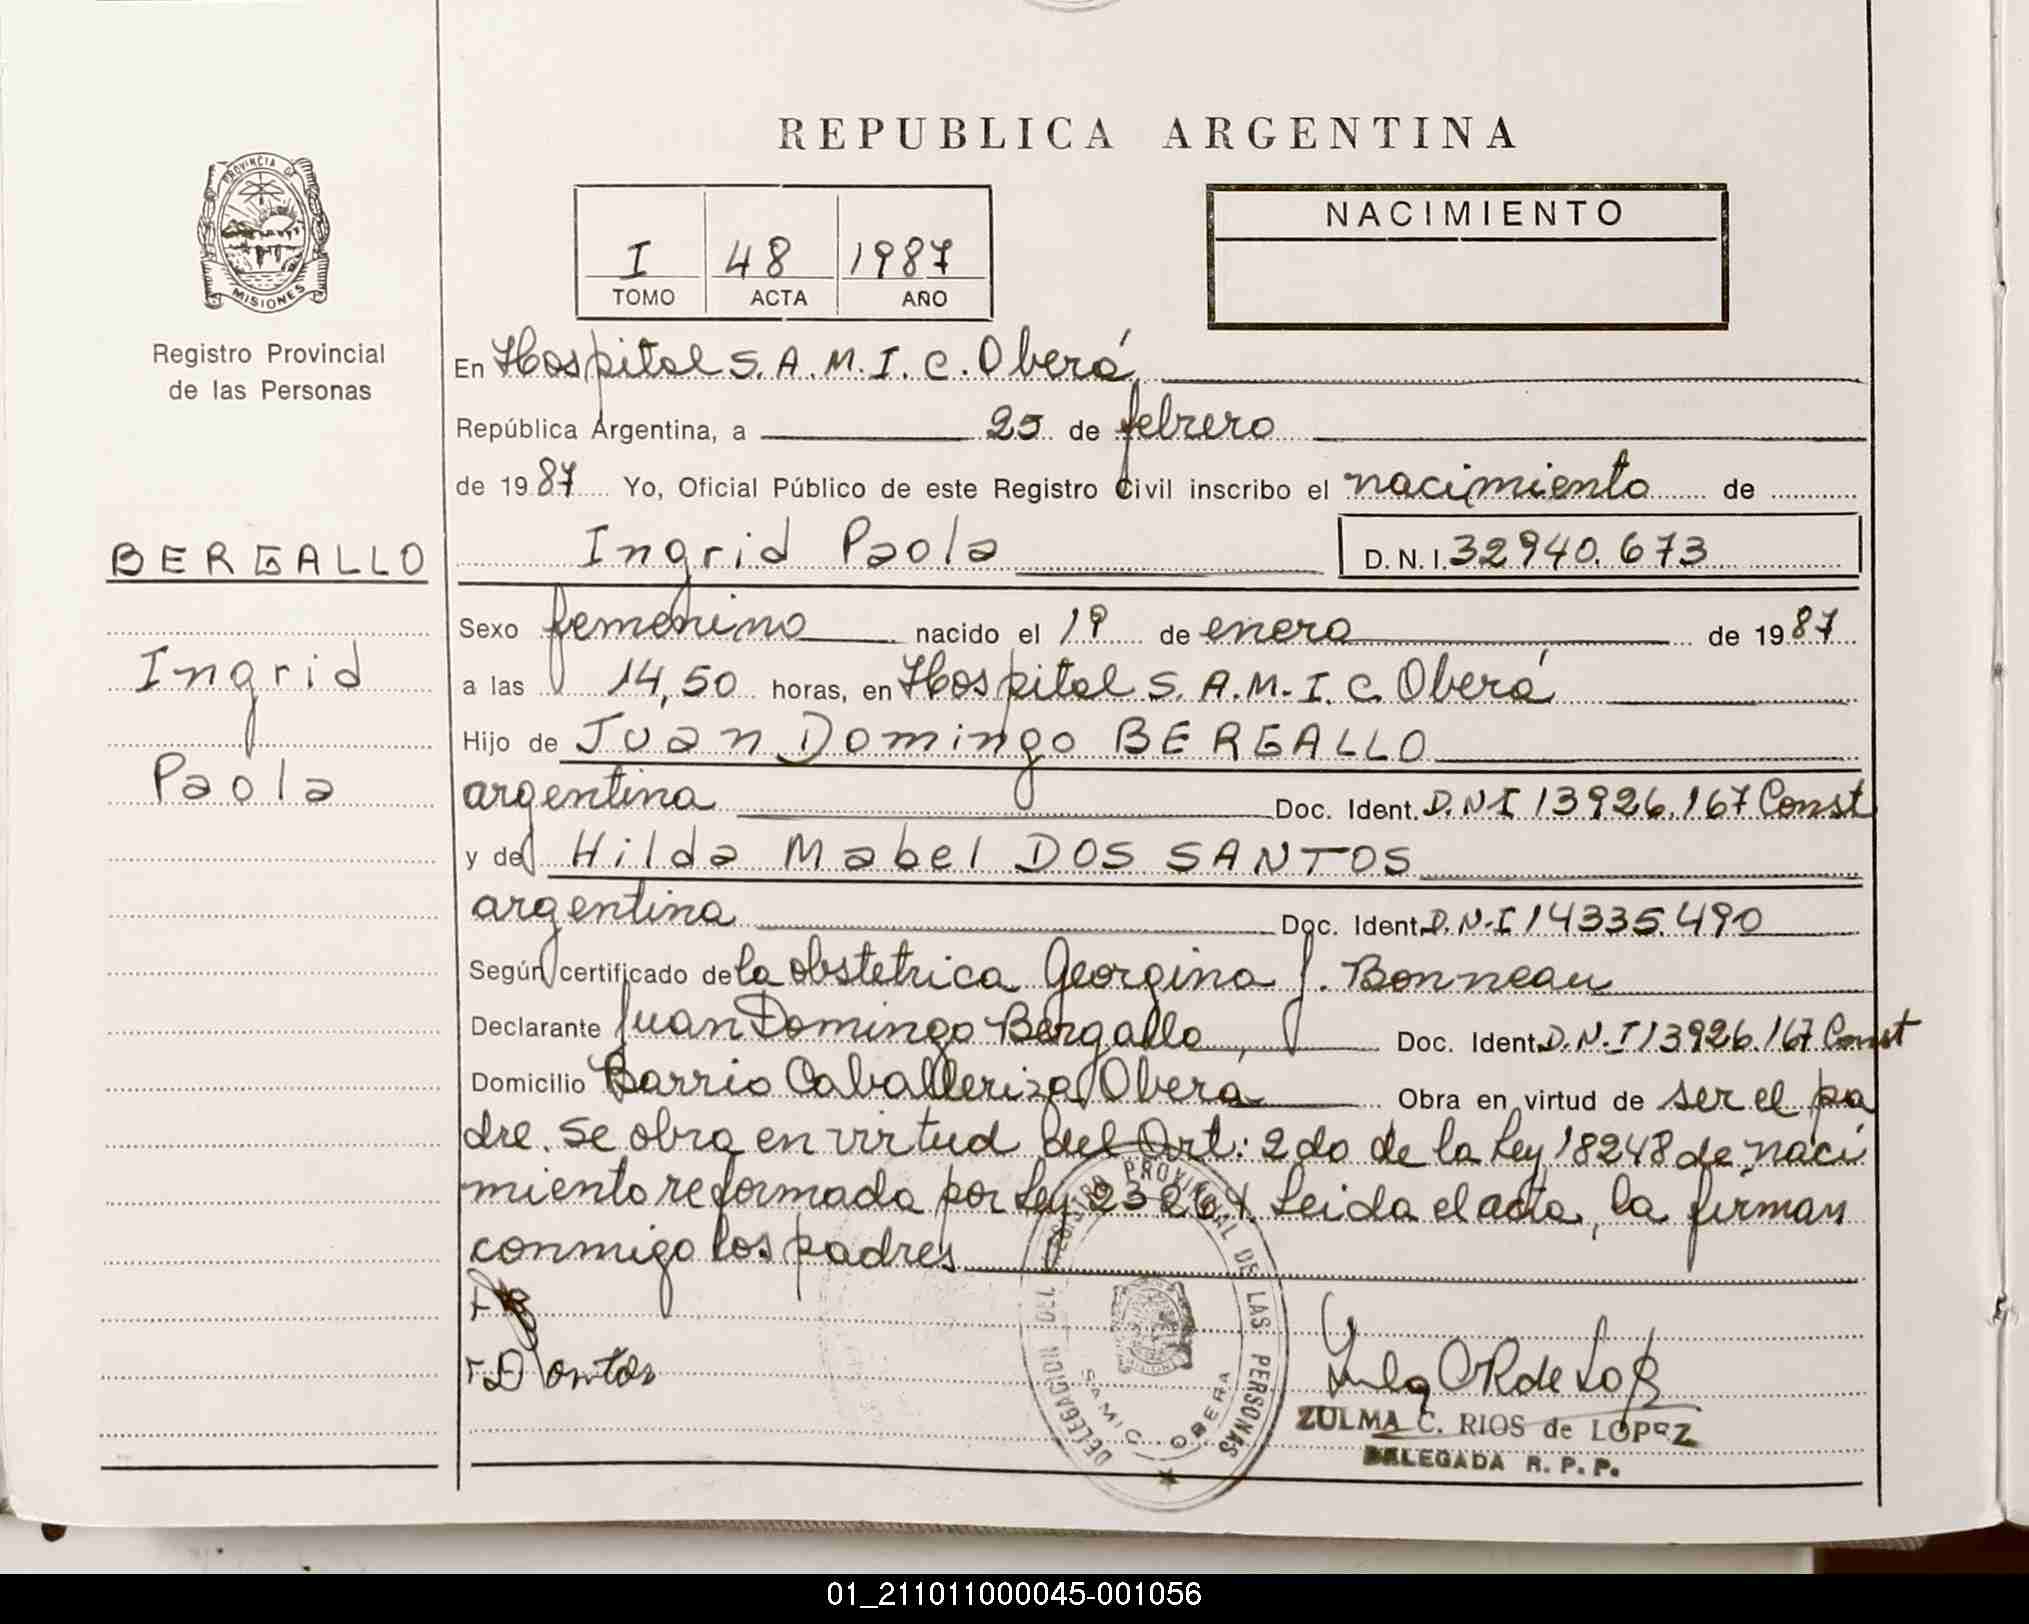 REPUBLICA ARGENTINA
PROVINCIA DE
MISIONES
Registro Provincial
de las Personas
I 48 1987
TOMO ACTA AÑO
NACIMIENTO
En Hospital S.A.M.I.C. Oberá
República Argentina, a 25 de febrero
de 1987 Yo, Oficial Público de este Registro Civil inscribo el nacimiento de
BERGALLO
Ingrid Paola D.N.I. 32940.673
Sexo femenino nacido el 19 de enero de 1987
Ingrid
a las 14,50 horas, en Hospital S.A.M.I.C. Oberá
Hijo de Juan Domingo BERGALLO
Paola
argentina Doc. Ident. D.N.I 13926.167 Const
y de Hilda Mabel DOS SANTOS
argentina Doc. Ident. D.N.I 14335.490
Según certificado de la obstetrica Georgina J. Bonneau
Declarante Juan Domingo Bergallo, Doc. Ident. D.N.I 13926.167 Const
Domicilio Barrio Caballeriza Oberá Obra en virtud de ser el pa
dre. Se obra en virtud del Art: 2do de la Ley 18248 de naci
miento reformada por Ley 23264. Leida el acta, la firman
conmigo los padres
REGISTRO PROVINCIAL DE LAS PERSONAS
DELEGACION
SAMIC OBERA
ZULMA C. RIOS de LOPEZ
DELEGADA R.P.P.
01_211011000045-001056